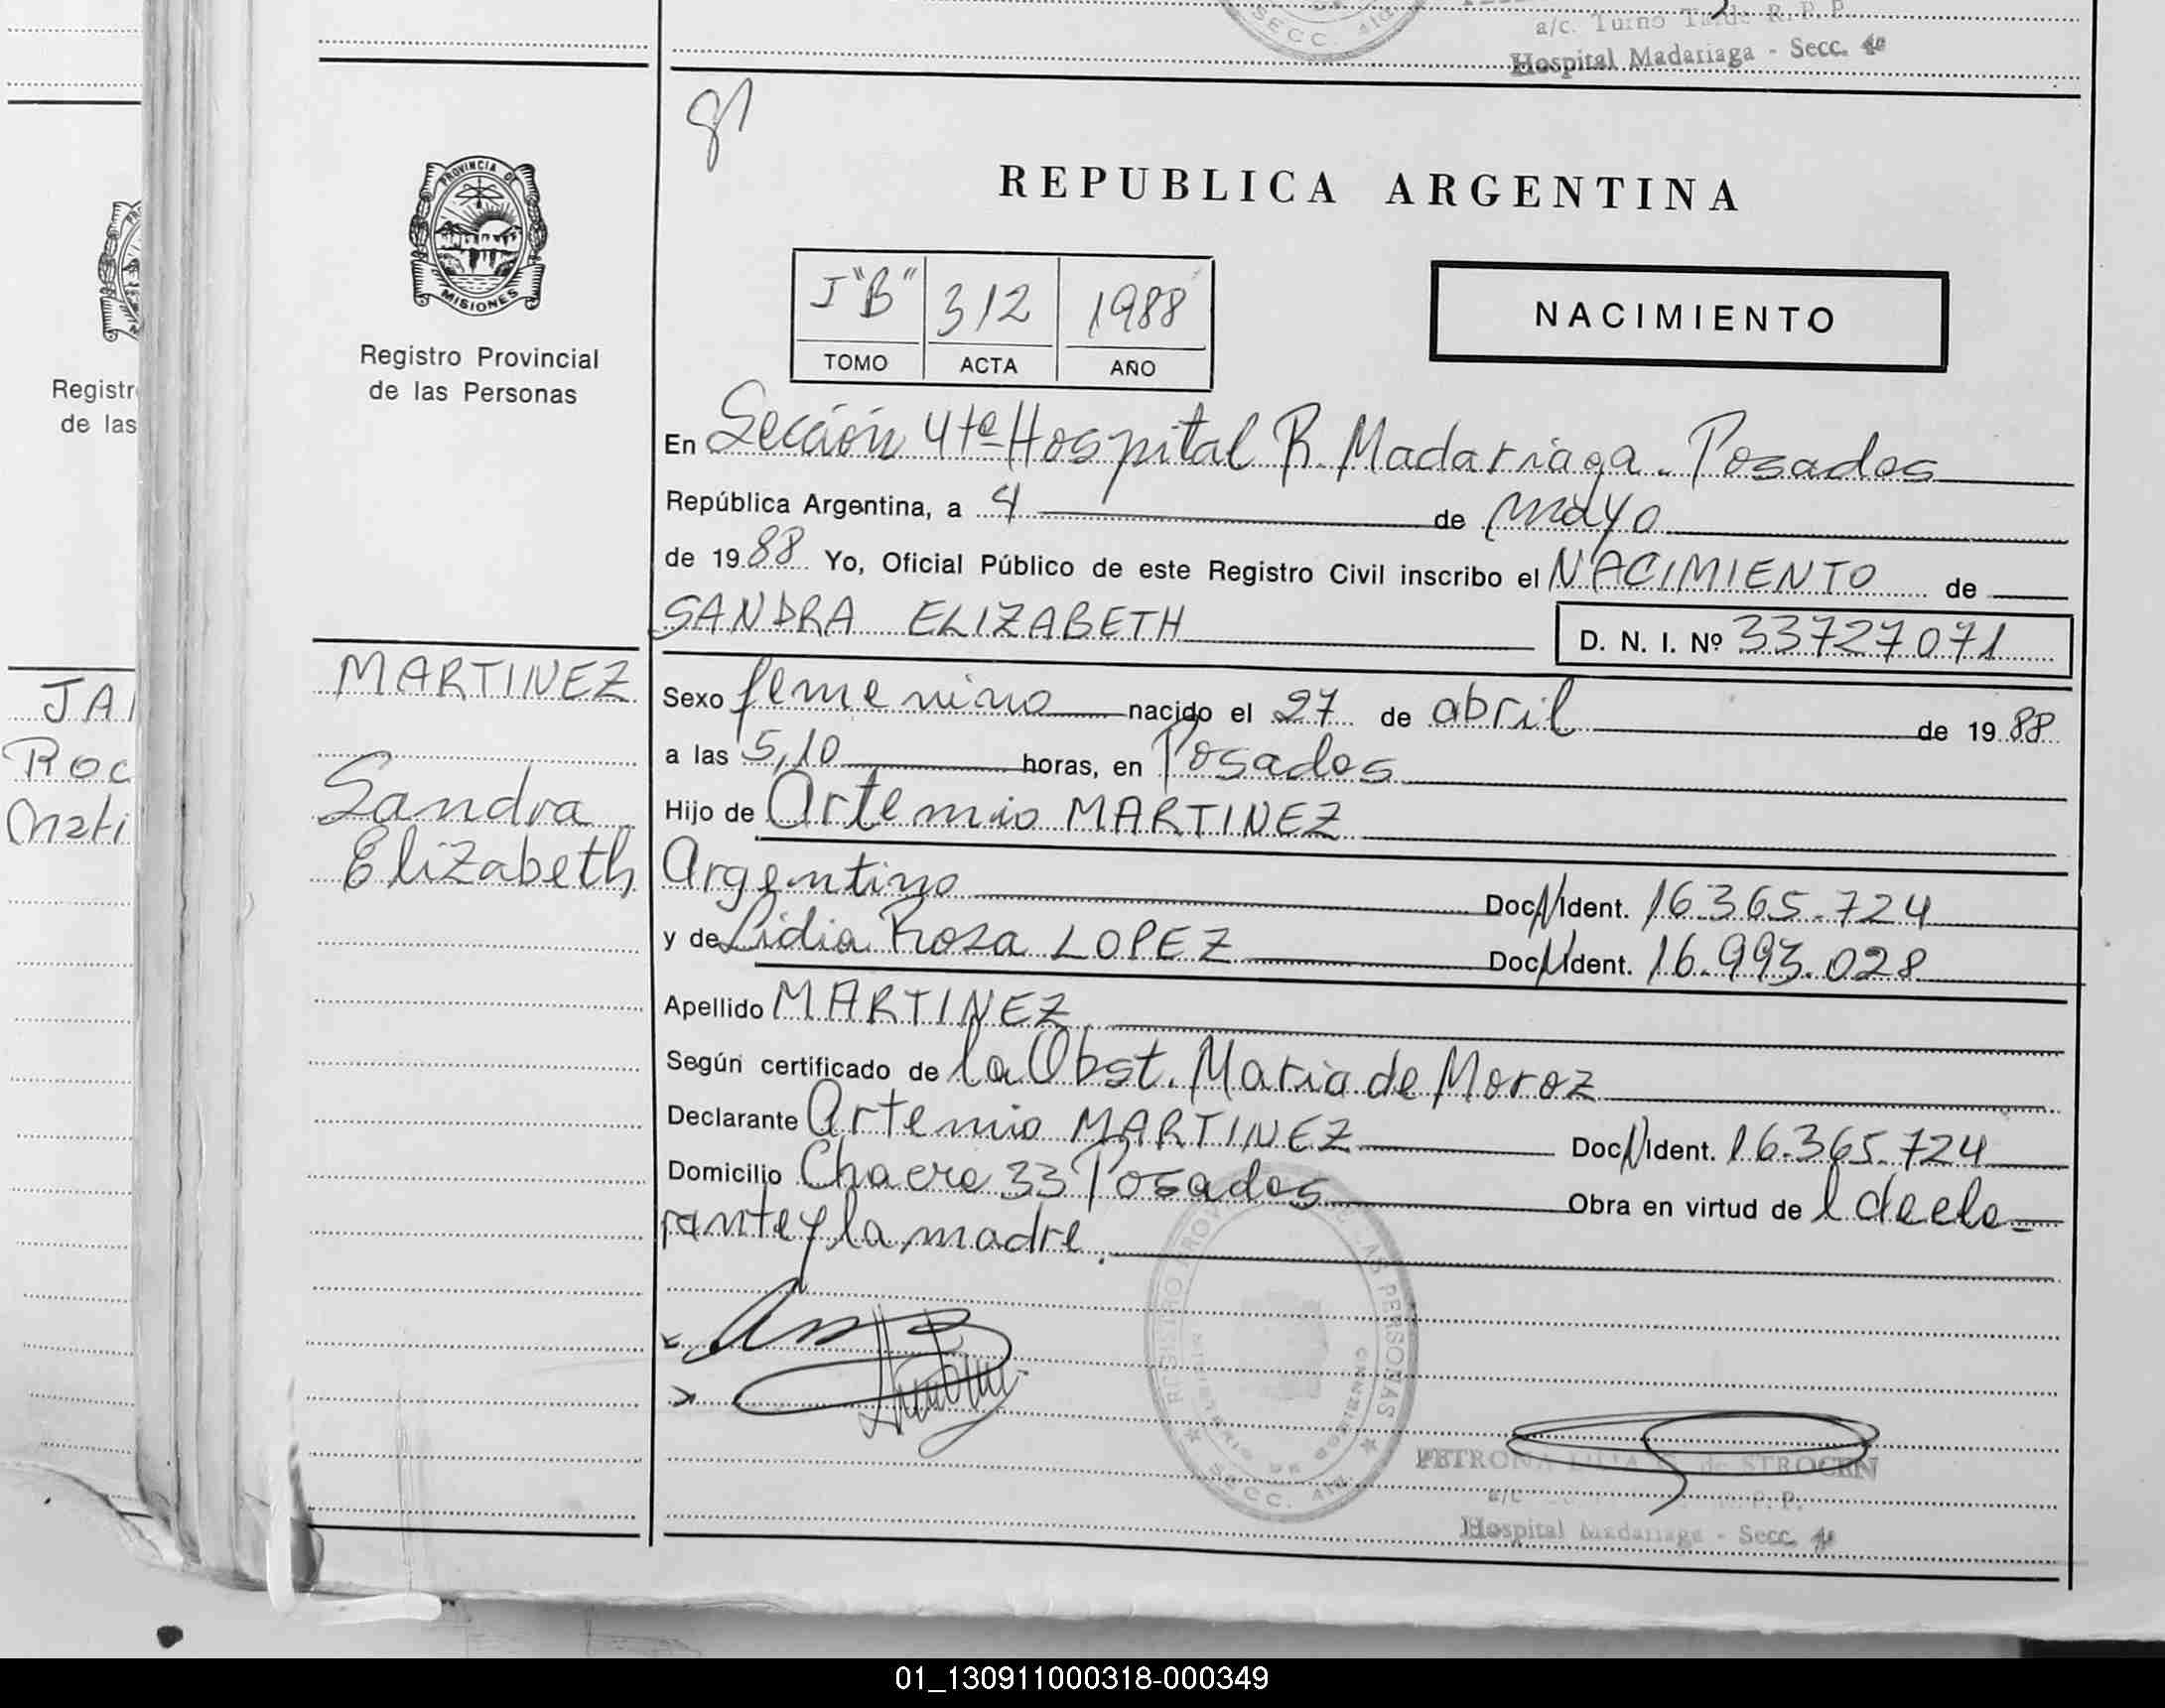 a/c. Turno Tarde R. P. P.
SECC. 4ta
Hospital Madariaga - Secc. 4ª
81
PROVINCIA DE
MISIONES
Registro Provincial
de las Personas
REPUBLICA ARGENTINA
J "B" 312 1988
TOMO ACTA AÑO
NACIMIENTO
Registr
de las
En Sección 4ta Hospital R. Madariaga - Posadas
República Argentina, a 4 de mayo
de 1988 Yo, Oficial Público de este Registro Civil inscribo el NACIMIENTO de
SANDRA ELIZABETH D. N. I. Nº 33727071
JA
Roc
Mati
MARTINEZ
Sandra
Elizabeth
Sexo femenino nacido el 27 de abril de 1988
a las 5,10 horas, en Posadas
Hijo de Artemio MARTINEZ
Argentino Doc N Ident. 16.365.724
y de Lidia Rosa LOPEZ Doc N Ident. 16.993.028
Apellido MARTINEZ
Según certificado de la Obst. Maria de Moroz
Declarante Artemio MARTINEZ Doc N Ident. 16.365.724
Domicilio Chacra 33 Posadas Obra en virtud de l decla-
rante y la madre.
REGISTRO PROV DE LAS PERSONAS
MINISTERIO DE GOBIERNO
SECC. 4ta
PETRONA de STROCEN
a/c R. P. P.
Hospital Madariaga - Secc. 4ª
01_130911000318-000349